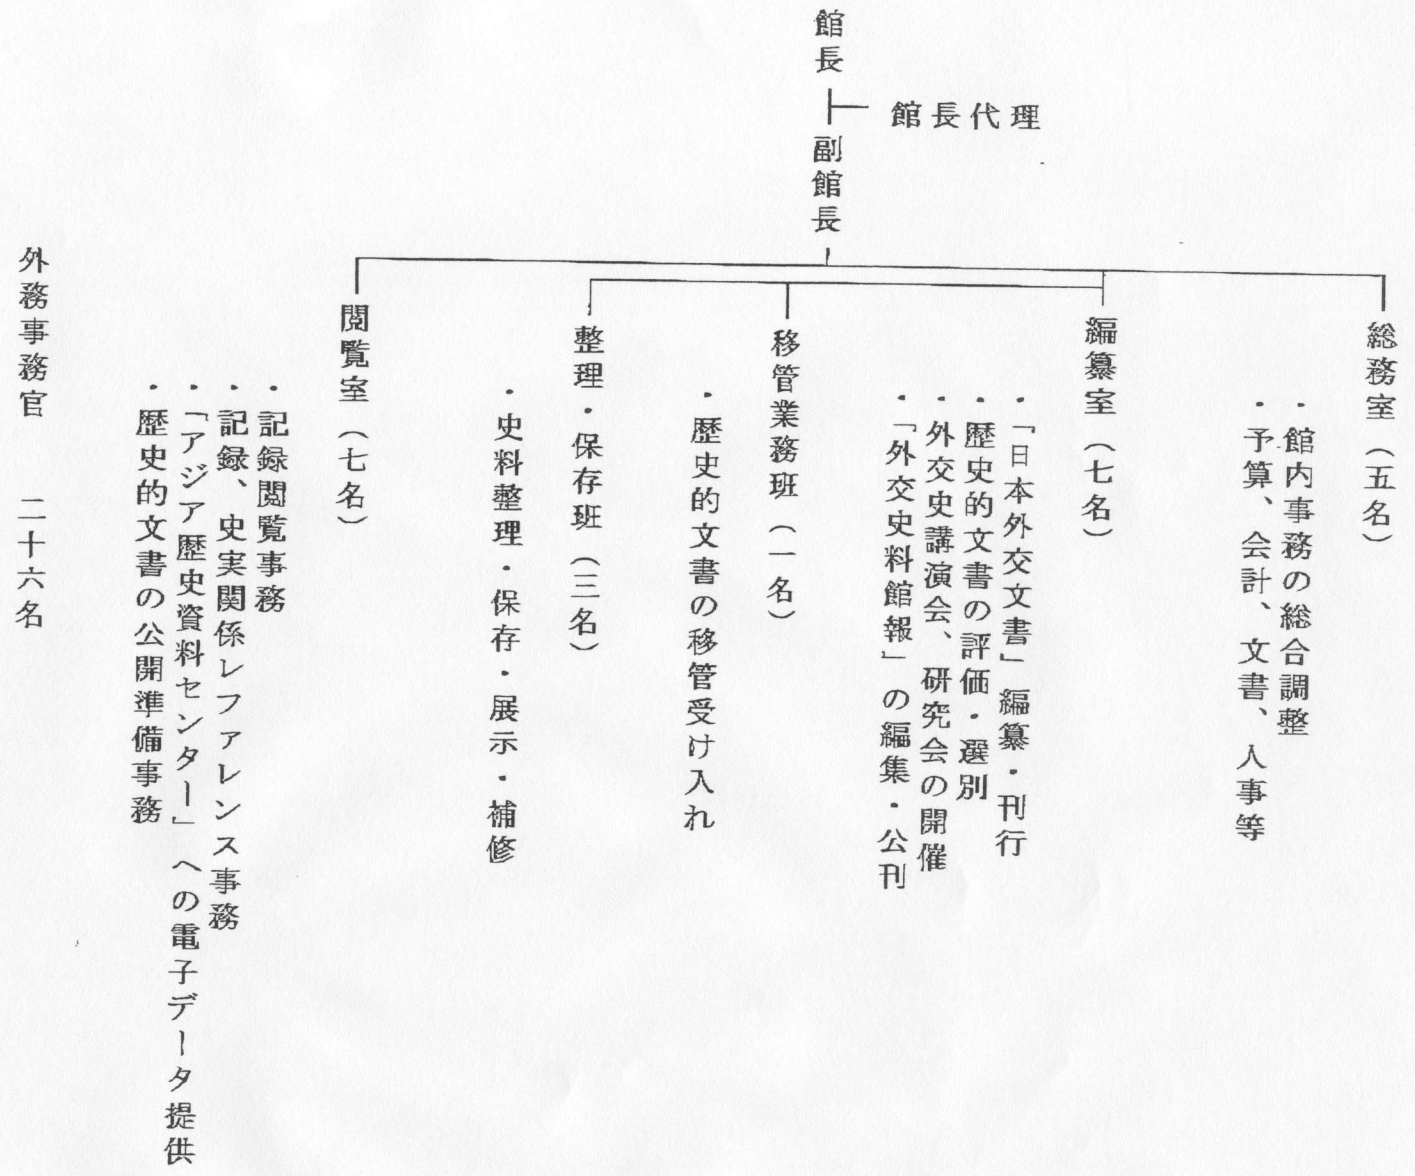 館長
館長代理
副館長
総務室（五名）
・館内事務の総合調整
・予算、会計、文書、人事等
編纂室（七名）
・「日本外交文書」編纂・刊行
・歴史的文書の評価・選別
・外交史講演会、研究会の開催
・「外交史料館報」の編集・公刊
移管業務班（一名）
・歴史的文書の移管受け入れ
整理・保存班（三名）
・史料整理・保存・展示・補修
閲覧室（七名）
・記録閲覧事務
・記録、史実関係レファレンス事務
・「アジア歴史資料センター」への電子データ提供
・歴史的文書の公開準備事務
外務事務官　二十六名